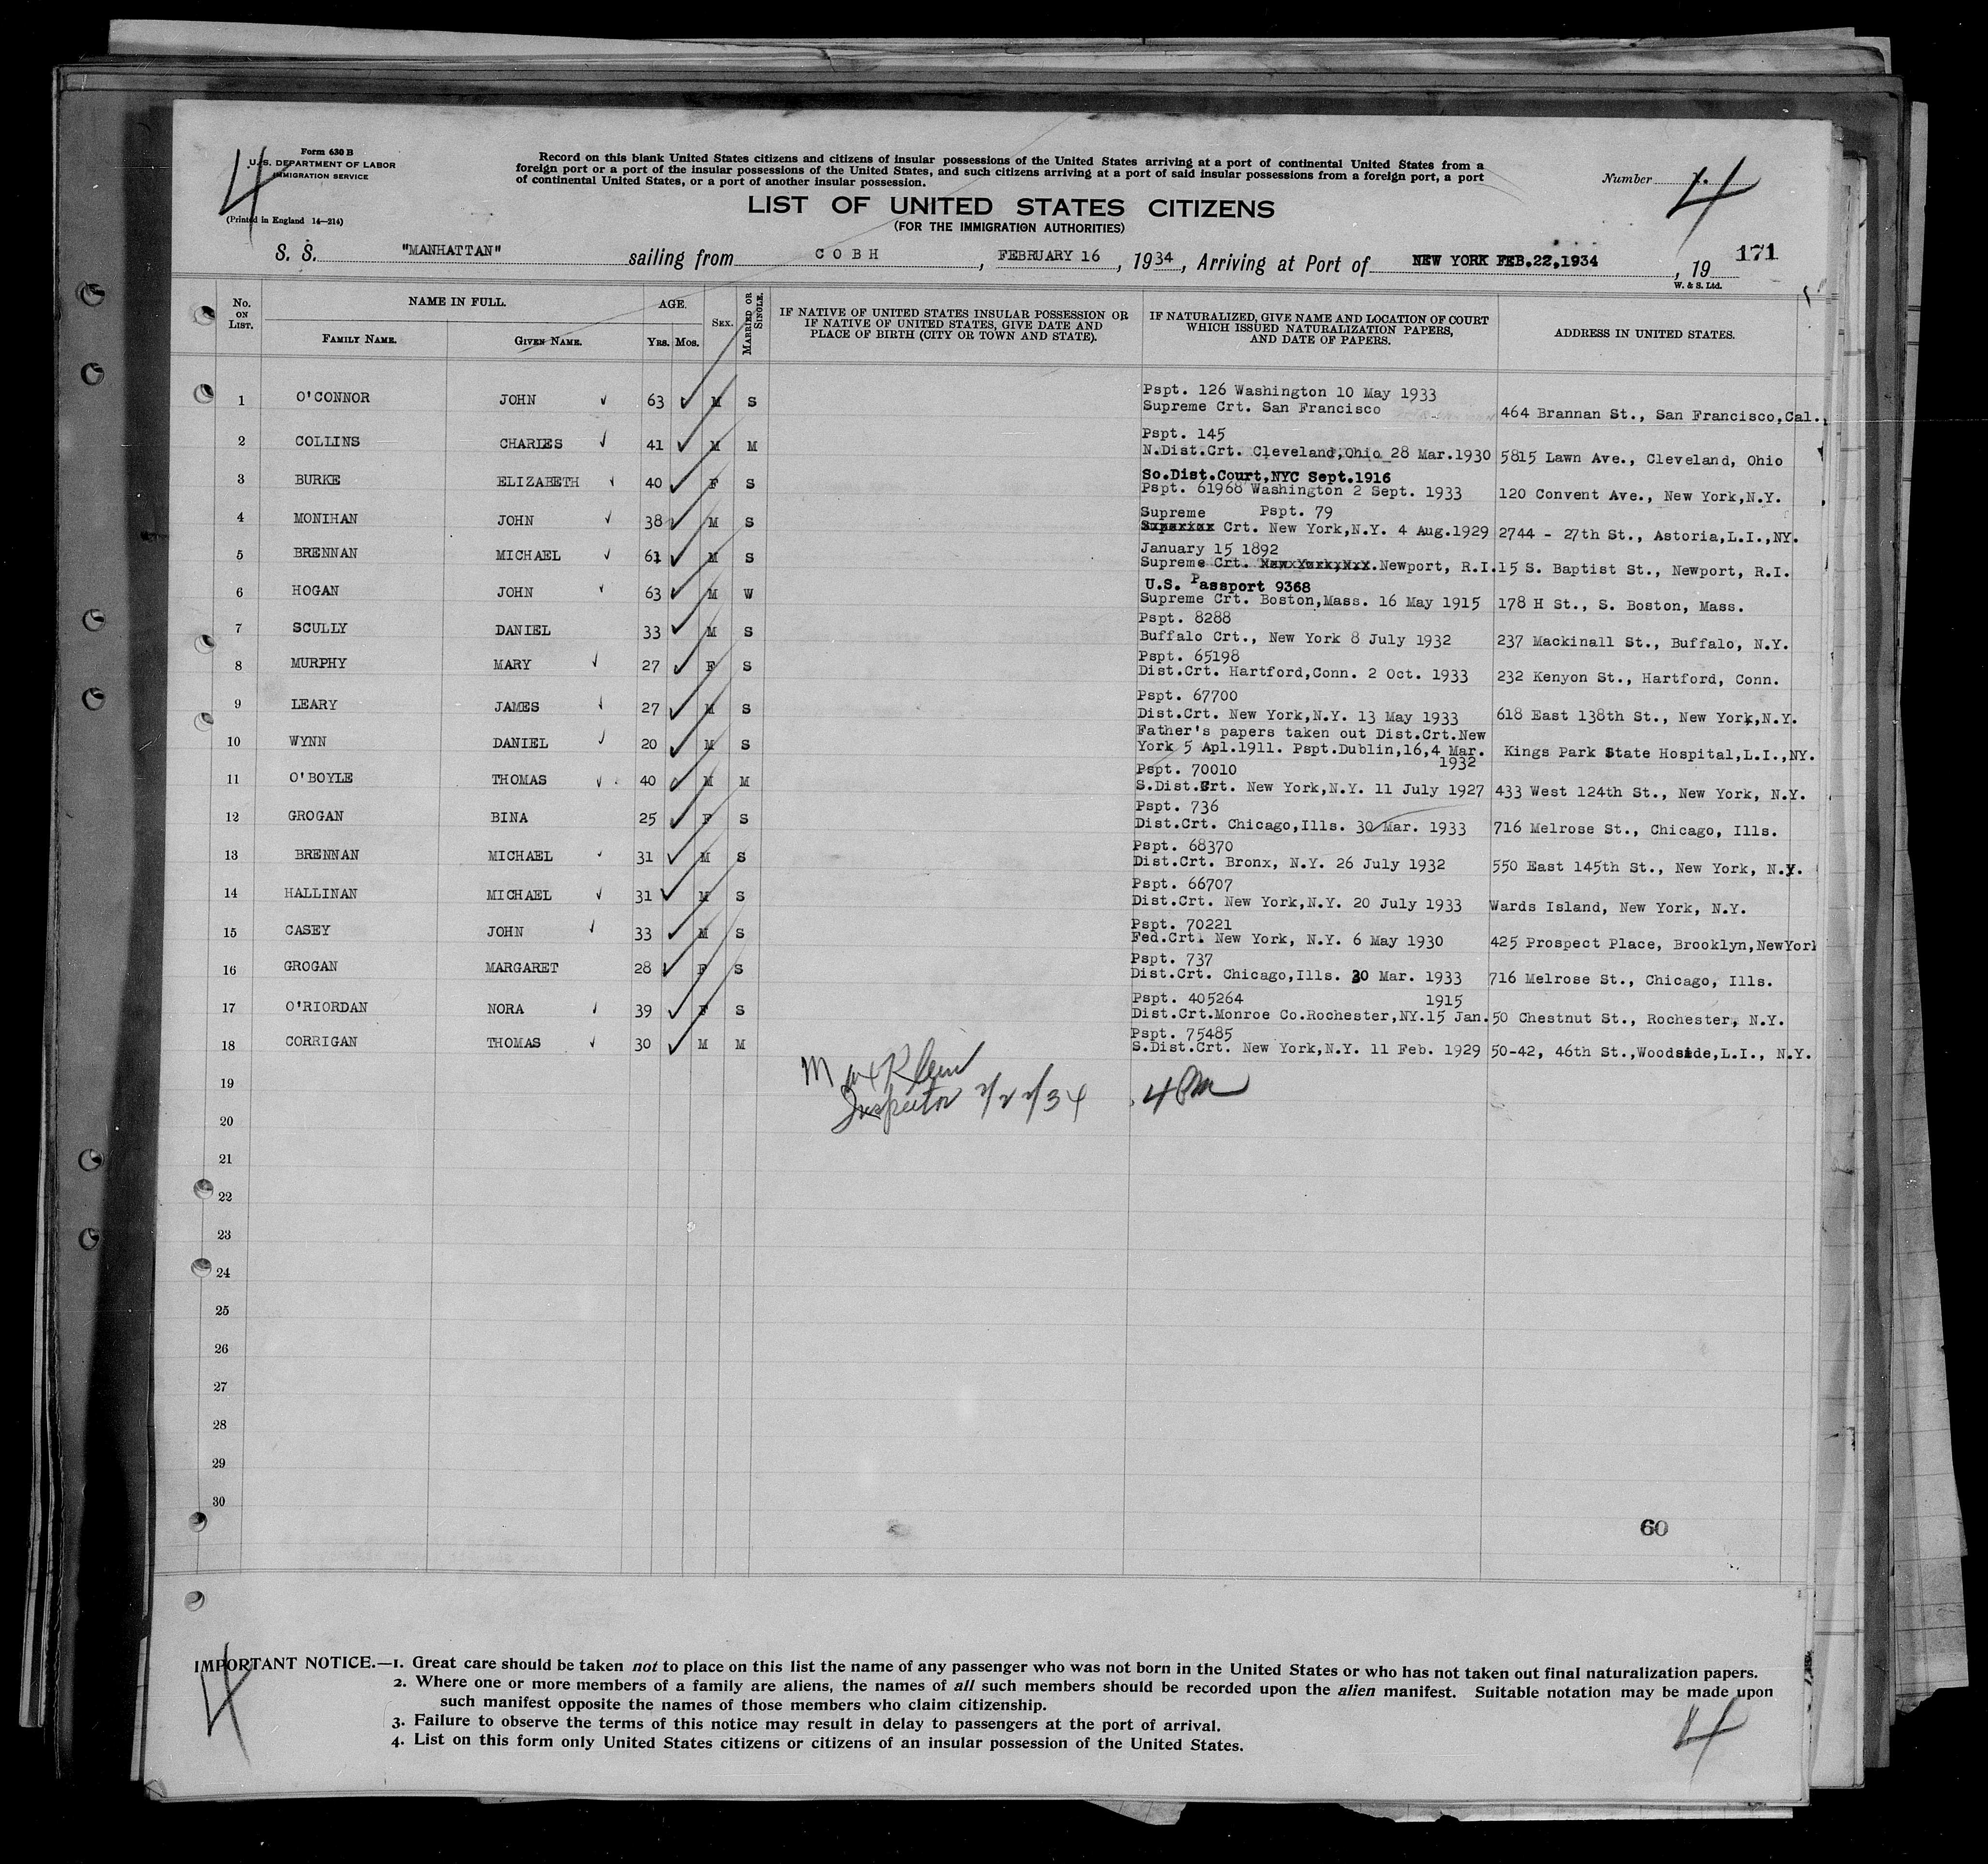 4
Form 630 B
U. S. DEPARTMENT OF LABOR
IMMIGRATION SERVICE
(Printed in England 14—214)
Record on this blank United States citizens and citizens of insular possessions of the United States arriving at a port of continental United States from a
foreign port or a port of the insular possessions of the United States, and such citizens arriving at a port of said insular possessions from a foreign port, a port
of continental United States, or a port of another insular possession.
Number 4
LIST OF UNITED STATES CITIZENS
(FOR THE IMMIGRATION AUTHORITIES)
S. S. "MANHATTAN" sailing from C O B H, FEBRUARY 16, 1934, Arriving at Port of NEW YORK FEB.22,1934, 19 171
W. & S. Ltd.
No. ON LIST. NAME IN FULL. AGE. SEX. MARRIED OR SINGLE. IF NATIVE OF UNITED STATES INSULAR POSSESSION OR IF NATIVE OF UNITED STATES, GIVE DATE AND PLACE OF BIRTH (CITY OR TOWN AND STATE). IF NATURALIZED, GIVE NAME AND LOCATION OF COURT WHICH ISSUED NATURALIZATION PAPERS, AND DATE OF PAPERS. ADDRESS IN UNITED STATES.
FAMILY NAME. GIVEN NAME. YRS. MOS.
Pspt. 126 Washington 10 May 1933
1 O'CONNOR JOHN 63 M S Supreme Crt. San Francisco 464 Brannan St., San Francisco,Cal.
Pspt. 145
2 COLLINS CHARLES 41 M M N.Dist.Crt. Cleveland,Ohio 28 Mar.1930 5815 Lawn Ave., Cleveland, Ohio
So.Dist.Court,NYC Sept.1916
3 BURKE ELIZABETH 40 F S Pspt. 61968 Washington 2 Sept. 1933 120 Convent Ave., New York,N.Y.
Supreme Pspt. 79
4 MONIHAN JOHN 38 M S Crt. New York,N.Y. 4 Aug.1929 2744 - 27th St., Astoria,L.I.,NY.
January 15 1892
5 BRENNAN MICHAEL 61 M S Supreme Crt. Newport, R.I. 15 S. Baptist St., Newport, R.I.
U.S. Passport 9368
6 HOGAN JOHN 63 M W Supreme Crt. Boston,Mass. 16 May 1915 178 H St., S. Boston, Mass.
Pspt. 8288
7 SCULLY DANIEL 33 M S Buffalo Crt., New York 8 July 1932 237 Mackinall St., Buffalo, N.Y.
Pspt. 65198
8 MURPHY MARY 27 F S Dist.Crt. Hartford,Conn. 2 Oct. 1933 232 Kenyon St., Hartford, Conn.
Pspt. 67700
9 LEARY JAMES 27 M S Dist.Crt. New York,N.Y. 13 May 1933 618 East 138th St., New York,N.Y.
Father's papers taken out Dist.Crt.New
10 WYNN DANIEL 20 M S York 5 Apl.1911. Pspt.Dublin,16,4 Mar. Kings Park State Hospital,L.I.,NY.
1932
Pspt. 70010
11 O'BOYLE THOMAS 40 M M S.Dist.Crt. New York,N.Y. 11 July 1927 433 West 124th St., New York, N.Y.
Pspt. 736
12 GROGAN BINA 25 F S Dist.Crt. Chicago,Ills. 30 Mar. 1933 716 Melrose St., Chicago, Ills.
Pspt. 68370
13 BRENNAN MICHAEL 31 M S Dist.Crt. Bronx, N.Y. 26 July 1932 550 East 145th St., New York, N.Y.
Pspt. 66707
14 HALLINAN MICHAEL 31 M S Dist.Crt. New York,N.Y. 20 July 1933 Wards Island, New York, N.Y.
Pspt. 70221
15 CASEY JOHN 33 M S Fed.Crt. New York, N.Y. 6 May 1930 425 Prospect Place, Brooklyn,NewYork
Pspt. 737
16 GROGAN MARGARET 28 F S Dist.Crt. Chicago,Ills. 30 Mar. 1933 716 Melrose St., Chicago, Ills.
Pspt. 405264 1915
17 O'RIORDAN NORA 39 F S Dist.Crt.Monroe Co.Rochester,NY.15 Jan. 50 Chestnut St., Rochester, N.Y.
Pspt. 75485
18 CORRIGAN THOMAS 30 M M S.Dist.Crt. New York,N.Y. 11 Feb. 1929 50-42, 46th St.,Woodside,L.I., N.Y.
19 Max Klein
Inspector 2/22/34 4 PM
20
21
22
23
24
25
26
27
28
29
30
60
IMPORTANT NOTICE.—1. Great care should be taken not to place on this list the name of any passenger who was not born in the United States or who has not taken out final naturalization papers.
2. Where one or more members of a family are aliens, the names of all such members should be recorded upon the alien manifest. Suitable notation may be made upon
such manifest opposite the names of those members who claim citizenship.
3. Failure to observe the terms of this notice may result in delay to passengers at the port of arrival.
4. List on this form only United States citizens or citizens of an insular possession of the United States.
4
4